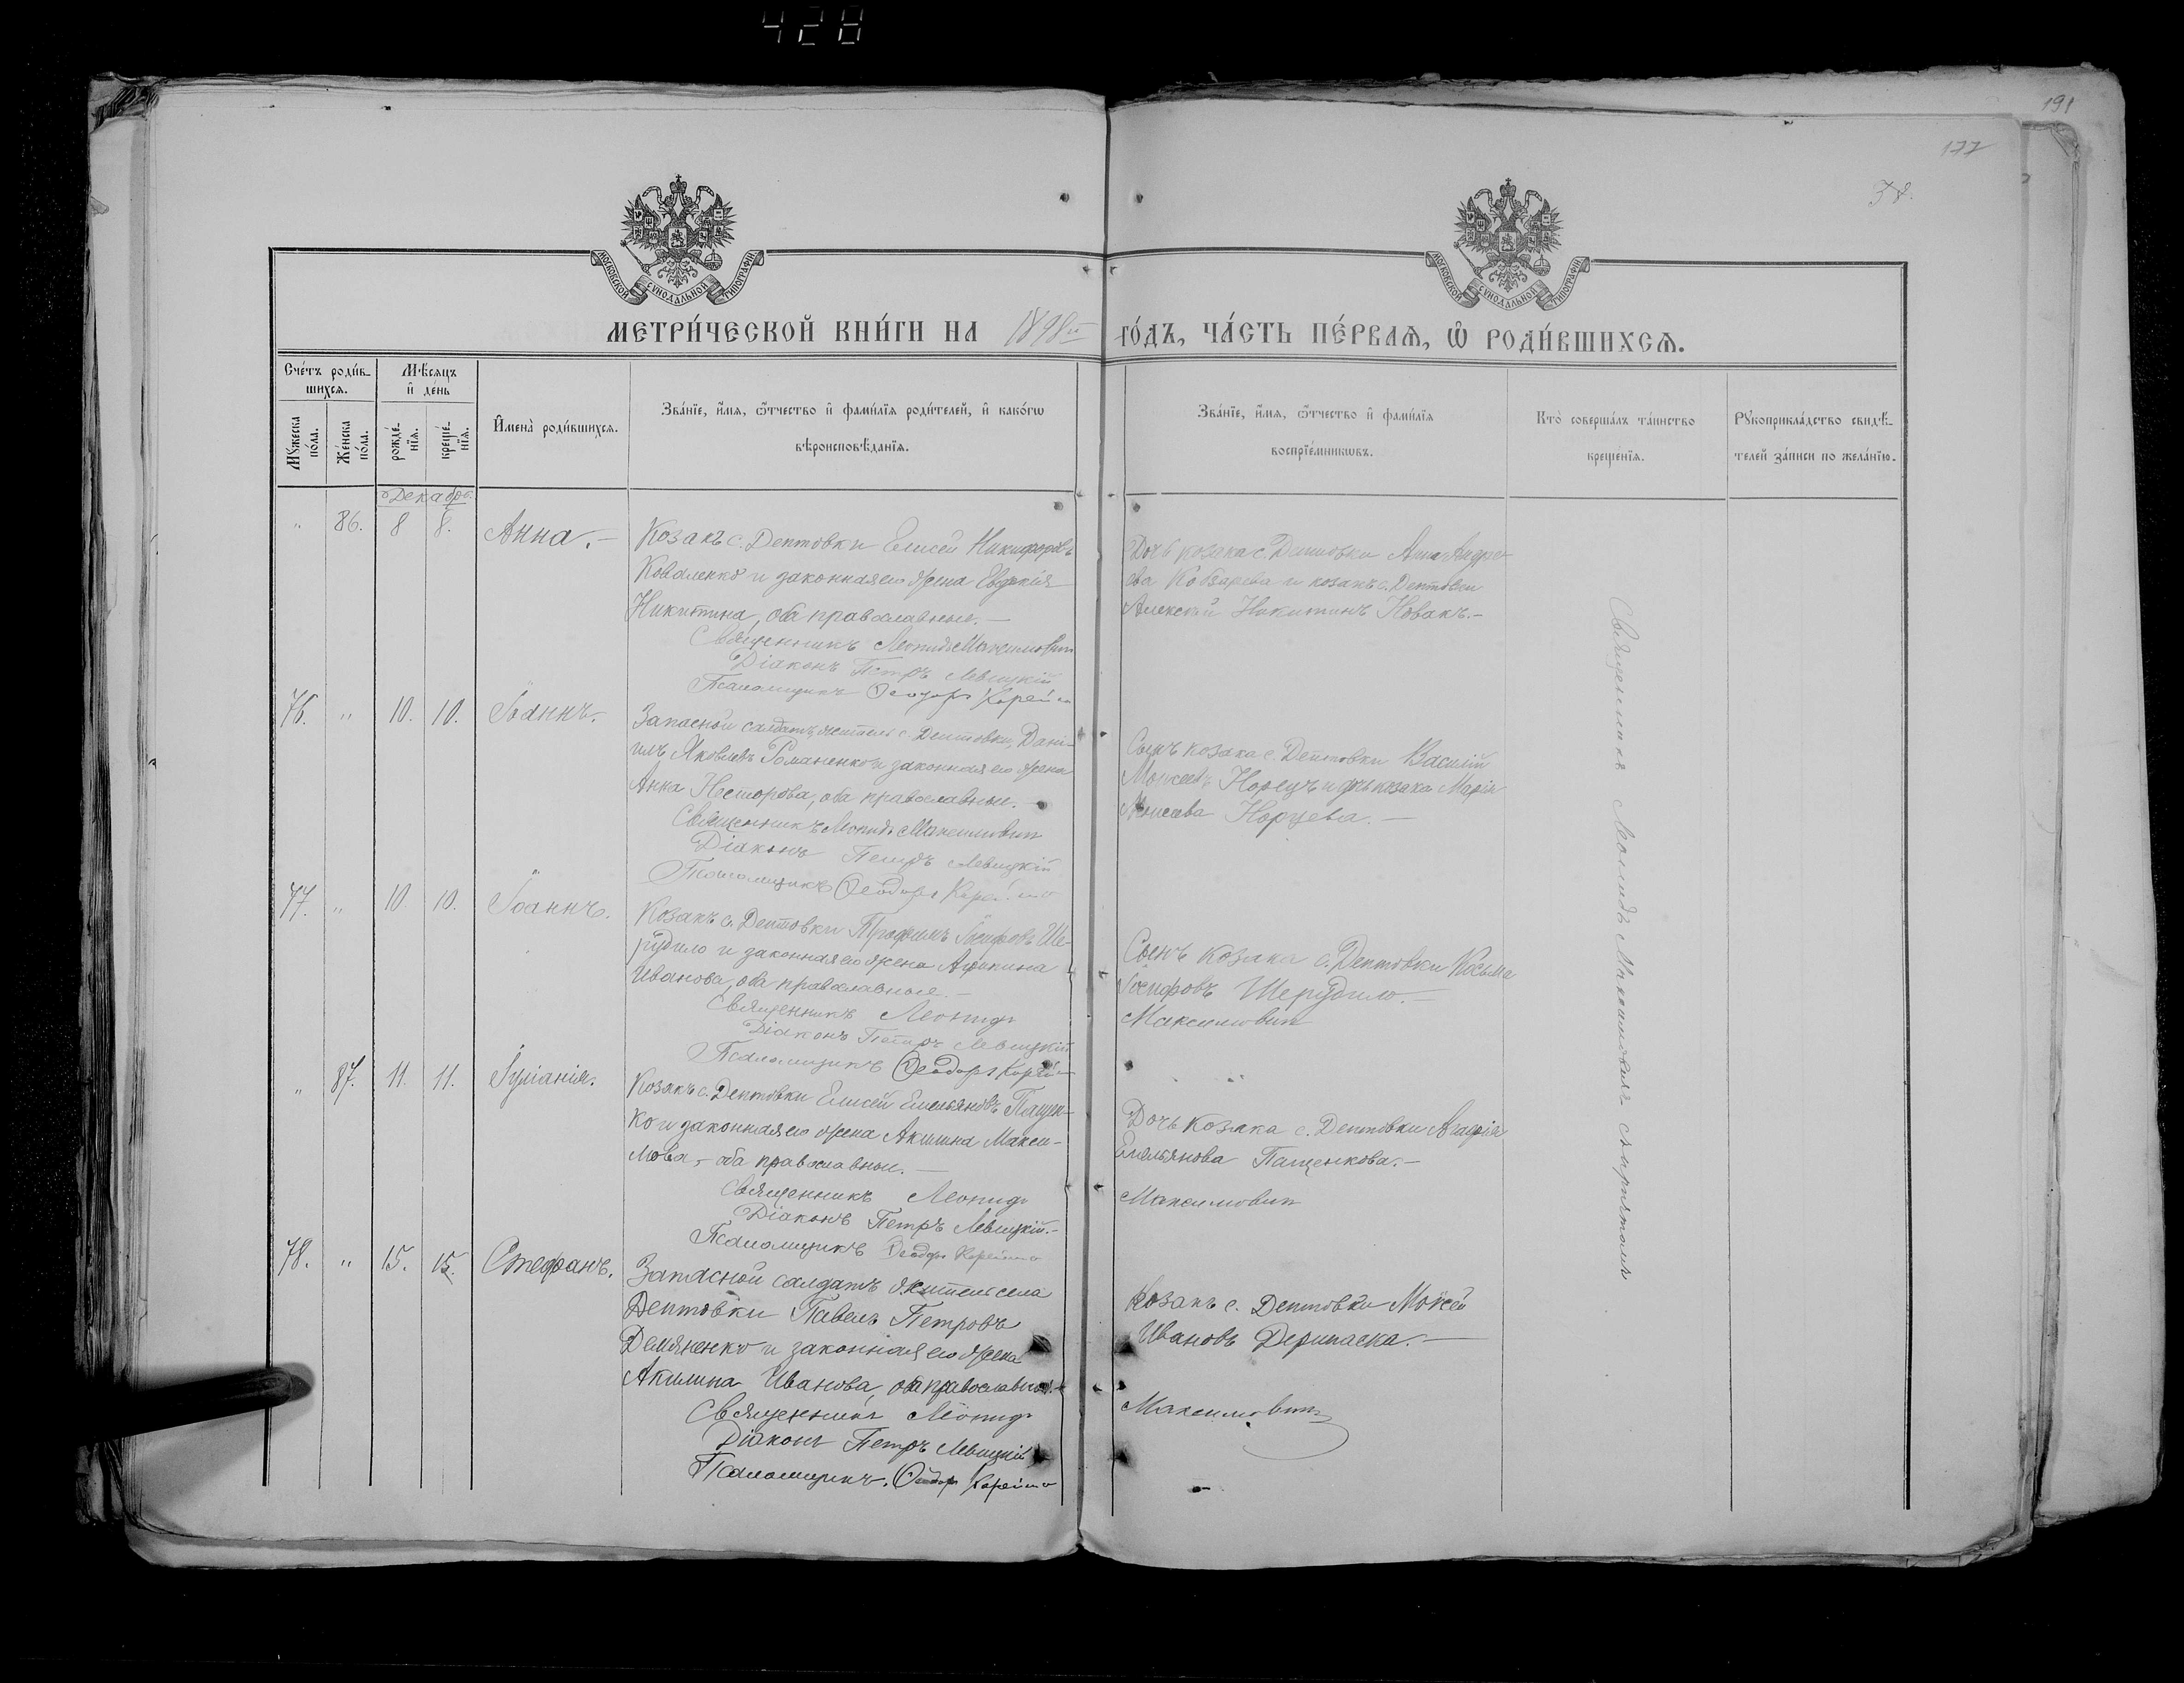 428
191
177
38.
МОСКОВСКОЙ СУНОДАЛЬНОЙ ТИПОГРАФІИ
МОСКОВСКОЙ СУНОДАЛЬНОЙ ТИПОГРАФІИ
МЕТРИ́ЧЕСКОЙ КНИ́ГИ НА 1898й ГО́ДЪ, ЧА́СТЬ ПЕ́РВАѦ, Ѡ҆ РОДИ́ВШИХСѦ.
Сче́тъ роди́в-
шихсѧ.
Мѣ́сѧцъ
и҆ де́нь
Мꙋ́жеска
по́ла.
Же́нска
по́ла.
рожде́-
нїѧ.
креще́-
нїѧ.
И҆мена̀ роди́вшихсѧ.
Зва́нїе, и҆́мѧ, ѻ҆́тчество и҆ фами́лїѧ роди́телей, и҆ како́гѡ
вѣроисповѣ́данїѧ.
Зва́нїе, и҆́мѧ, ѻ҆́тчество и҆ фами́лїѧ
воспрїе́мникѡвъ.
Кто̀ соверша́лъ та́инство
креще́нїѧ.
Рꙋкоприкла́дство свидѣ́-
телей за́писи по жела́нїю.
Декабрь.
" 86. 8 8. Анна.—
Козакъ с. Дептовки Елисей Никифоровъ
Коваленко и законная его жена Евдокія
Никитина, оба православные.—
Священникъ Леонидъ Максимовичъ
Діаконъ Петръ Левицкій
Псаломщикъ Ѳеодоръ Корейша
Дочь козака с. Дептовки Анна Андре-
ева Кобзарева и козакъ с. Дептовки
Алексѣй Никитинъ Новакъ.—
76. " 10. 10. Іоаннъ.
Запасной салдатъ, житель с. Дептовки, Дані-
илъ Яковлевъ Романенко и законная его жена
Анна Несторова, оба православные.—
Священникъ Леонидъ Максимовичъ
Діаконъ Петръ Левицкій
Псаломщикъ Ѳеодоръ Корейша
Сынъ козака с. Дептовки Василій
Моисеевъ Норецъ и дочь козака Марія
Моисеева Норцева.—
77. " 10. 10. Іоаннъ.
Козакъ с. Дептовки Трофимъ Іосифовъ Ше-
рудило и законная его жена
Иванова, оба православные.—
Священникъ Леонидъ
Діаконъ Петръ Левицкій
Псаломщикъ Ѳеодоръ Корейша
Сынъ козака с. Дептовки Косьма
Іосифовъ Шерудило.—
Максимовичъ
" 87. 11. 11. Іуліанія.
Козакъ с. Дептовки Елисей Емельяновъ Пащен-
ко и законная его жена Акилина Макси-
мова,— оба православные.—
Священникъ Леонидъ
Діаконъ Петръ Левицкій.—
Псаломщикъ Ѳеодоръ Корейша
Дочь козака с. Дептовки Агафія
Емельянова Пащенкова.—
Максимовичъ
78. " 15. 15. Стефанъ.
Запасной салдатъ житель села
Дептовки Павелъ Петровъ
Демяненко и законная его жена
Акилина Иванова, оба православные.
Священникъ Леонидъ
Діаконъ Петръ Левицкій
Псаломщикъ. Ѳеодоръ Корейша
Козакъ с. Дептовки Моисей
Ивановъ Дерипаска.—
Максимовичъ
Священникъ Леонидъ Максимовичъ